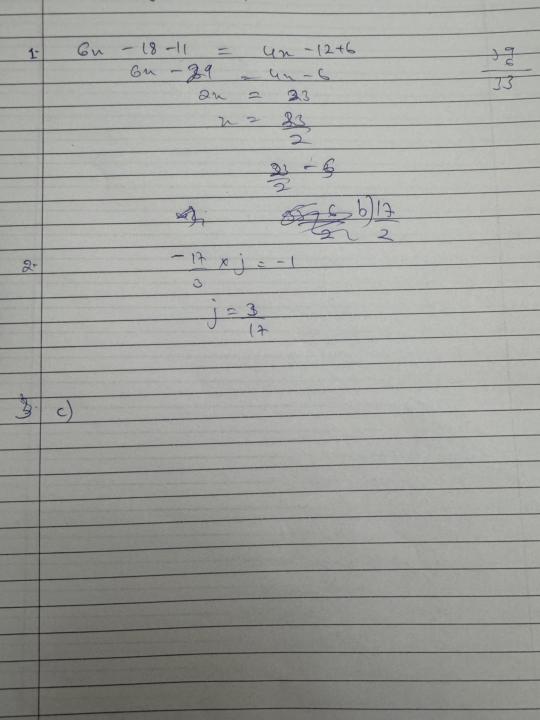 1. 6x - 18 - 11 = 4x - 12 + 6
6x - 29 = 4x - 6
2x = 23
x = 23/2
23/2 - 6
b) 17/2
2. -17/3 × j = -1
j = 3/17
3. c)
9
6
33